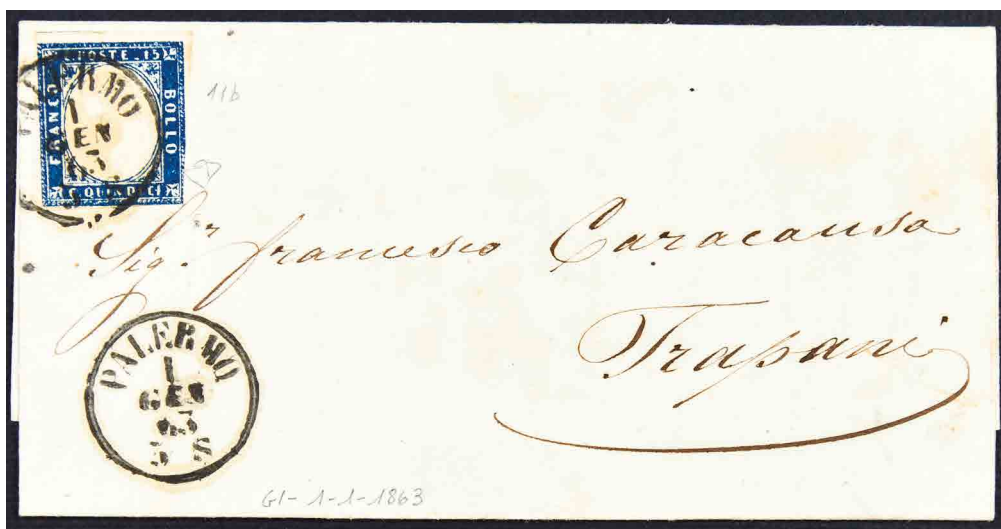 FRANCO
POSTE. 15
BOLLO
C. QUINDICI
PALERMO
1
GEN
63
11b
Sig.r francesco Caracausa
Trapani
PALERMO
1
GEN
63
3 S
GI- 1-1-1863